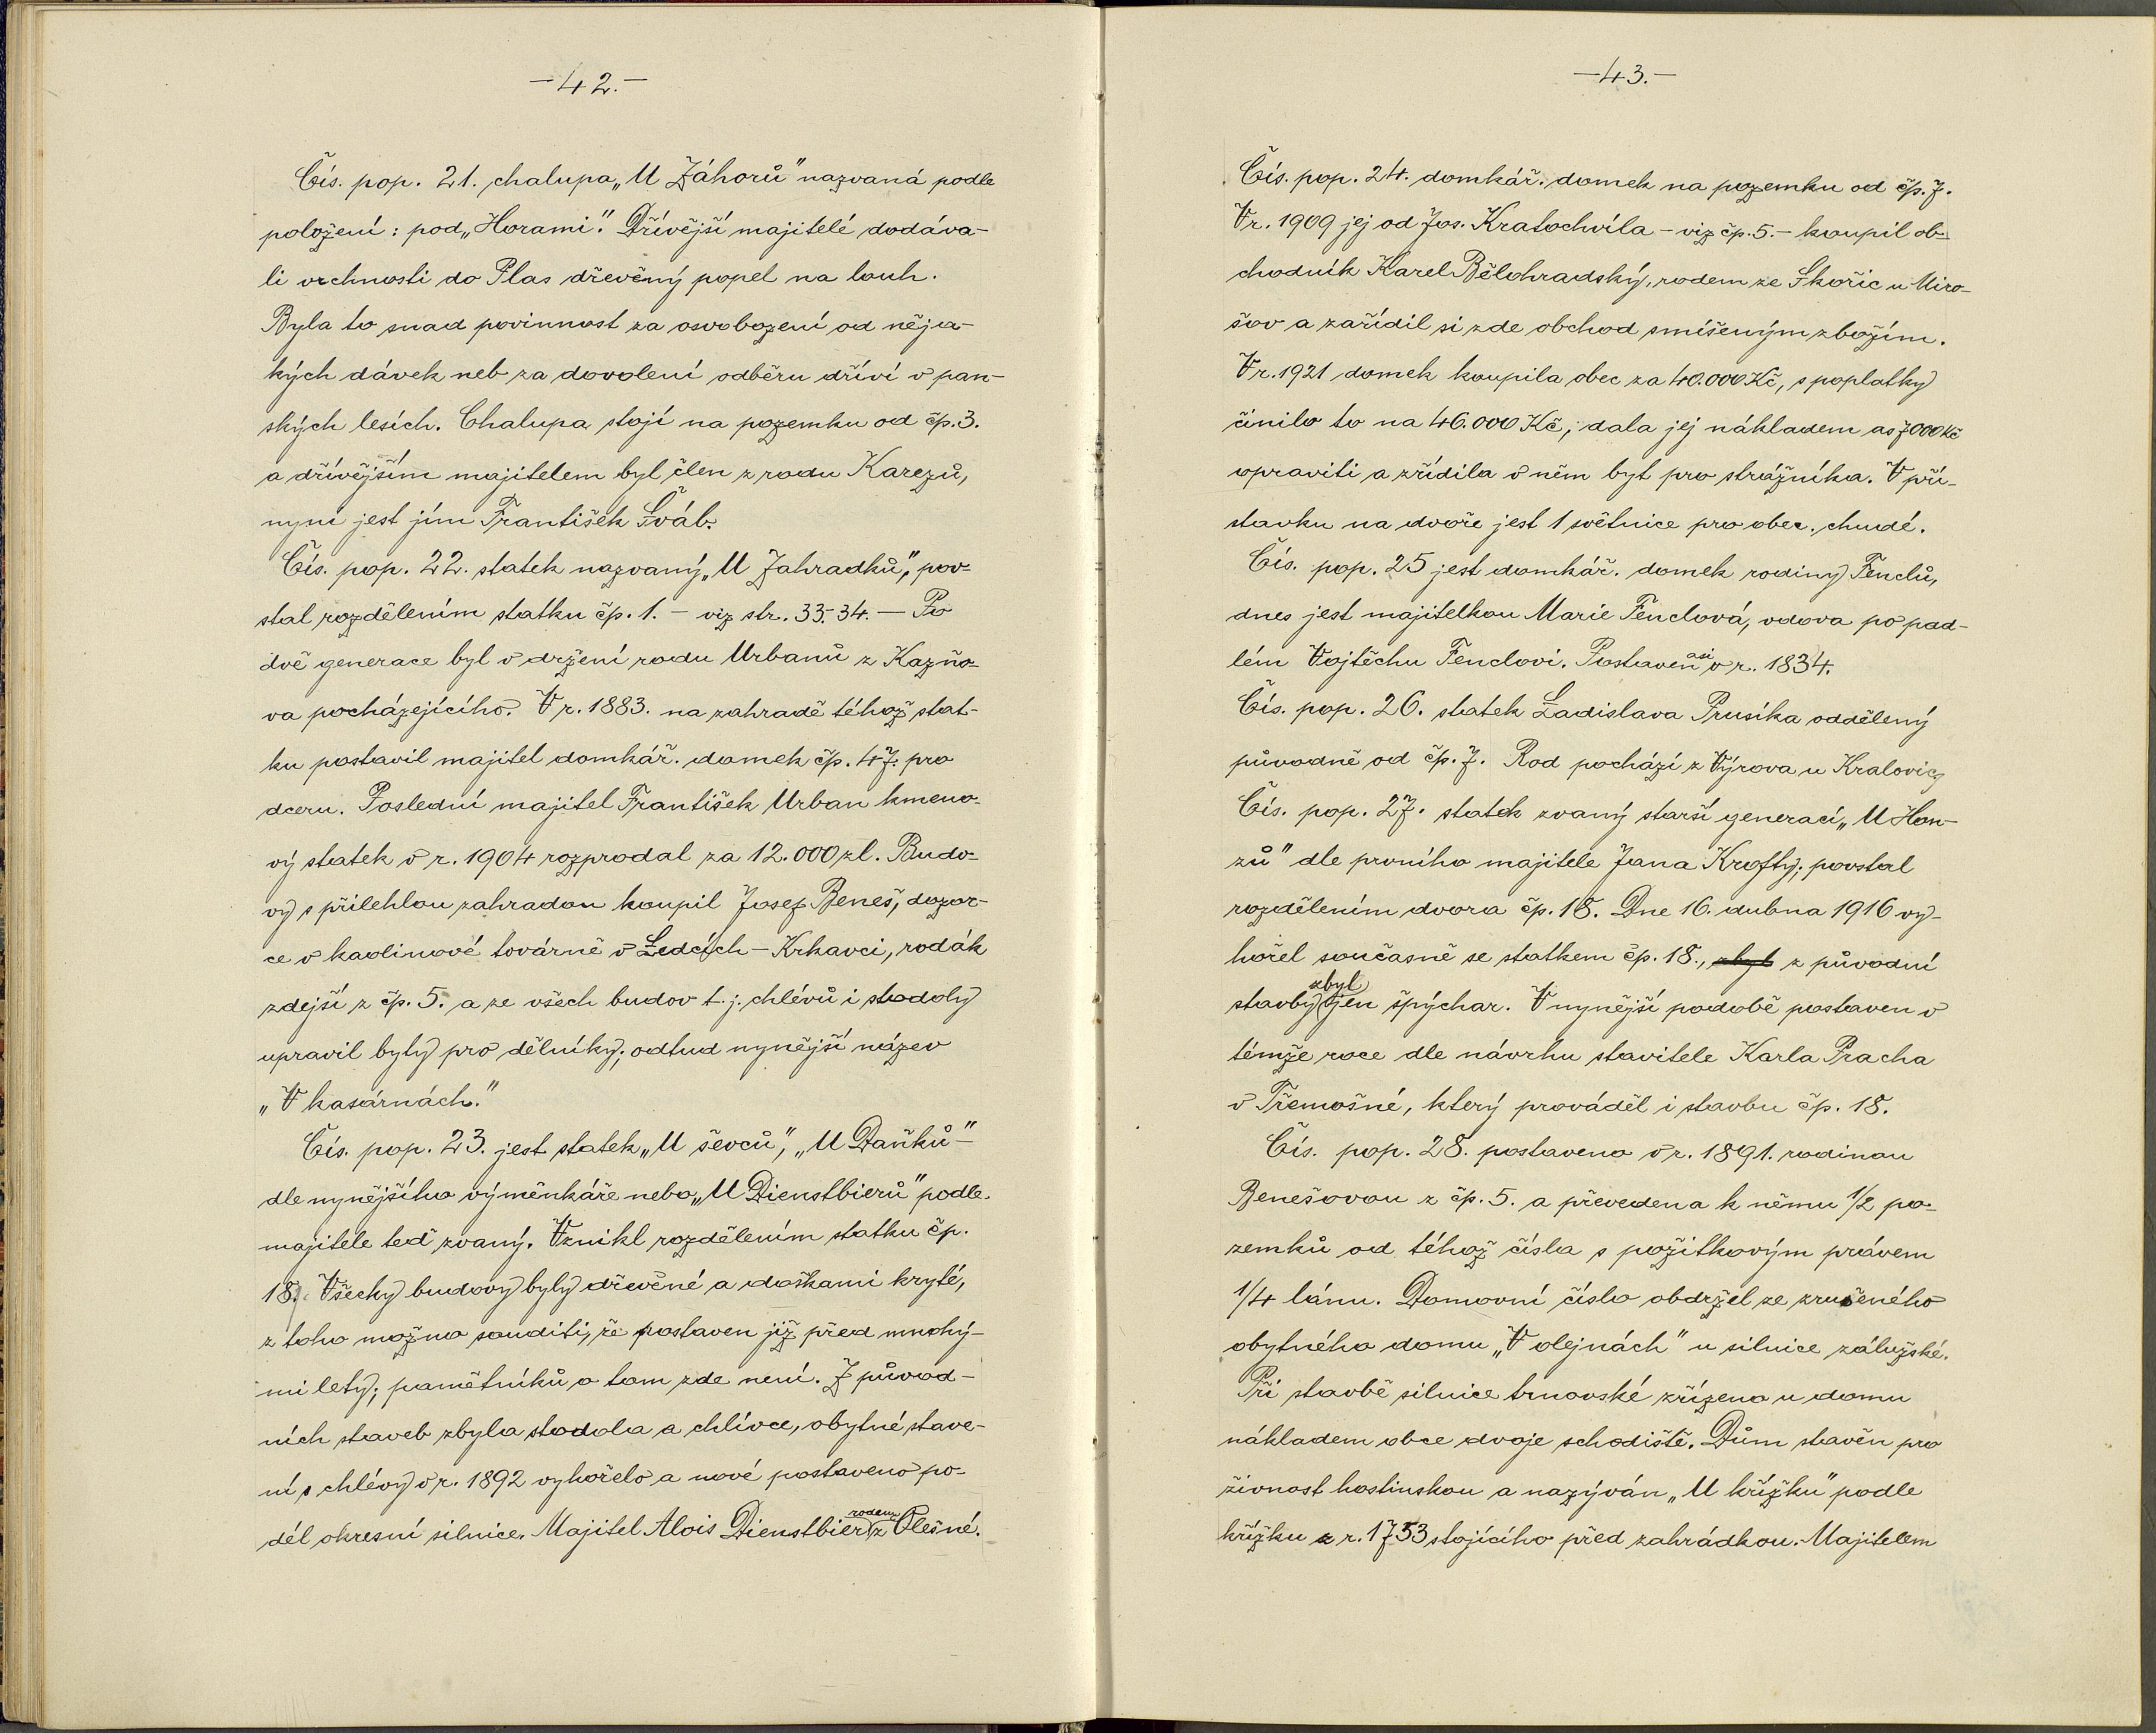 —42.—
Čís. pop. 21. chalupa „U Záhorů" nazvaná podle
položení: pod „Horami." Dřívější majitelé dodáva-
li vrchnosti do Plas dřevěný popel na louh.
Byla to snad povinnost za osvobození od něja-
kých dávek neb za dovolení odběru dříví v pan-
ských lesích. Chalupa stojí na pozemku od čp. 3.
a dřívějším majitelem byl člen z rodu Karezů,
nyní jest jím František Šváb.
Čís. pop. 22. statek nazvaný „U Zahradků", pov-
stal rozdělením statku čp. 1. – viz str. 33.-34. — Po
dvě generace byl v držení rodu Urbanů z Kazňo-
va pocházejícího. V r. 1883. na zahradě téhož stat-
ku postavil majitel domkář. domek čp. 47. pro
dceru. Poslední majitel František Urban kmeno-
vý statek v r. 1904 rozprodal za 12.000 zl. Budo-
vy s přilehlou zahradou koupil Josef Beneš, dozor-
ce v kaolinové továrně v Ledcích – Krkavci, rodák
zdejší z čp. 5. a ze všech budov t. j. chlévů i stodoly
upravil byty pro dělníky; odtud nynější název
„V kasárnách."
Čís. pop. 23. jest statek „U ševců", „U Daňků" –
dle nynějšího výměnkáře nebo „U Dienstbierů" podle
majitele teď zvaný. Vznikl rozdělením statku čp.
18. Všecky budovy byly dřevěné a doškami kryté,
z toho možno souditi, že postaven již před mnohý-
mi lety; pamětníků o tom zde není. Z původ-
ních staveb zbyla stodola a chlívce, obytné stave-
ní s chlévy v r. 1892 vyhořelo a nové postaveno po-
dél okresní silnice. Majitel Alois Dienstbier rodem z Olešné.
—43.—
Čís. pop. 24. domkář. domek na pozemku od čp. 7.
V r. 1909 jej od Jos. Kratochvíla – viz čp. 5. – koupil ob-
chodník Karel Bělohradský, rodem ze Skořic u Miro-
šov a zařídil si zde obchod smíšeným zbožím.
V r. 1921 domek koupila obec za 40.000 Kč, s poplatky
činilo to na 46.000 Kč; dala jej nákladem as 7000 Kč
opraviti a zřídila v něm byt pro strážníka. V pří-
stavku na dvoře jest 1 světnice pro obec. chudé.
Čís. pop. 25 jest domkář. domek rodiny Fenclů,
dnes jest majitelkou Marie Fenclová, vdova po pad-
lém Vojtěchu Fenclovi. Postaven asi v r. 1834.
Čís. pop. 26. statek Ladislava Prusíka oddělený
původně od čp. 7. Rod pochází z Výrova u Kralovic.
Čís. pop. 27. statek zvaný starší generací „U Hon-
zů" dle prvního majitele Jana Krofty; povstal
rozdělením dvora čp. 18. Dne 16. dubna 1916 vy-
hořel současně se statkem čp. 18., zbyl z původní
stavby zbyl jen špýchar. V nynější podobě postaven v
témže roce dle návrhu stavitele Karla Pracha
v Třemošné, který prováděl i stavbu čp. 18.
Čís. pop. 28. postaveno v r. 1891. rodinou
Benešovou z čp. 5. a převedena k němu 1/2 po-
zemků od téhož čísla s požitkovým právem
1/4 lánu. Domovní číslo obdržel ze zrušeného
obytného domu „V olejnách" u silnice zálužské.
Při stavbě silnice trnovské zřízeno u domu
nákladem obce dvoje schodiště. Dům stavěn pro
živnost hostinskou a nazýván „U křížku" podle
křížku z r. 1753 stojícího před zahrádkou. Majitelem